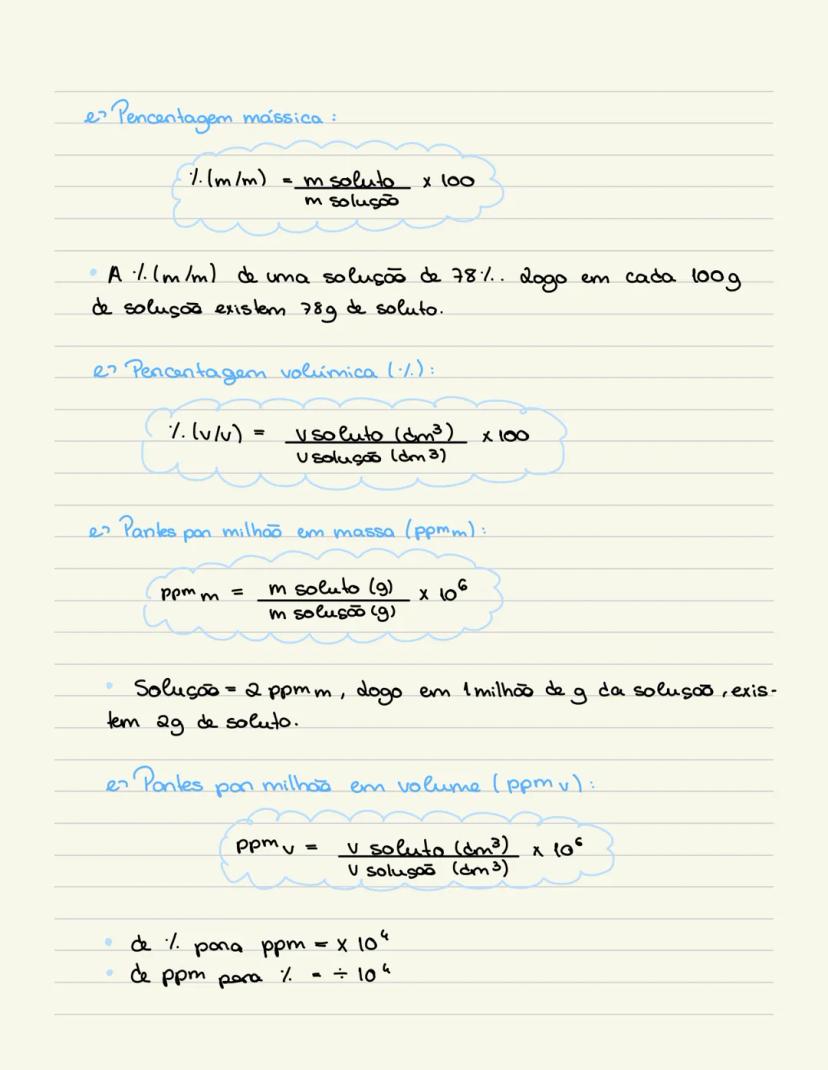 ↳ Percentagem mássica:
% (m/m) = m soluto / m solução x 100
• A % (m/m) de uma solução de 78%. Logo em cada 100g
de solução existem 78g de soluto.
↳ Percentagem volúmica (%):
% (v/v) = v soluto (dm³) / v solução (dm³) x 100
↳ Partes por milhão em massa (ppm m):
ppm m = m soluto (g) / m solução (g) x 10⁶
• Solução = 2 ppm m, logo em 1 milhão de g da solução, exis-
tem 2g de soluto.
↳ Partes por milhão em volume (ppm v):
ppm v = v soluto (dm³) / v solução (dm³) x 10⁶
• de % para ppm = x 10⁴
• de ppm para % = ÷ 10⁴